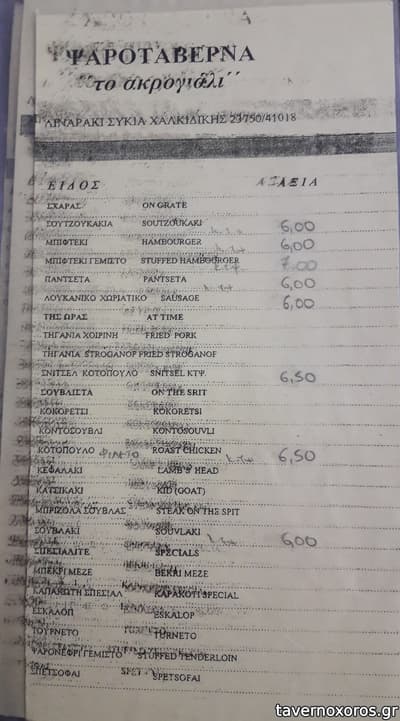 ΨΑΡΟΤΑΒΕΡΝΑ
΄΄το ακρογιάλι΄΄
ΛΙΝΑΡΑΚΙ ΣΥΚΙΑ ΧΑΛΚΙΔΙΚΗΣ 23750/41018
ΕΙΔΟΣ ΑΞΙΑ
ΣΧΑΡΑΣ ON GRATE
ΣΟΥΤΖΟΥΚΑΚΙΑ SOUTZOUKAKI 6,00
ΜΠΙΦΤΕΚΙ HAMBOURGER 6,00
ΜΠΙΦΤΕΚΙ ΓΕΜΙΣΤΟ STUFFED HAMBOURGER 7,00
ΠΑΝΤΣΕΤΑ PANTSETA 6,00
ΛΟΥΚΑΝΙΚΟ ΧΩΡΙΑΤΙΚΟ SAUSAGE 6,00
ΤΗΣ ΩΡΑΣ AT TIME
ΤΗΓΑΝΙΑ ΧΟΙΡΙΝΗ FRIED PORK
ΤΗΓΑΝΙΑ STROGANOF FRIED STROGANOF
ΣΝΙΤΣΕΛ ΚΟΤΟΠΟΥΛΟ SNITSEL ΚΤΨ. 6,50
ΣΟΥΒΛΙΣΤΑ ON THE SRIT
ΚΟΚΟΡΕΤΣΙ KOKORETSI
ΚΟΝΤΟΣΟΥΒΛΙ KONTOSOUVLI
ΚΟΤΟΠΟΥΛΟ ΦΙΛΕΤΟ ROAST CHICKEN 6,50
ΚΕΦΑΛΑΚΙ LAMB'S HEAD
ΚΑΤΣΙΚΑΚΙ KID (GOAT)
ΜΠΡΙΖΟΛΑ ΣΟΥΒΛΑΣ STEAK ON THE SPIT
ΣΟΥΒΛΑΚΙ SOUVLAKI 6,00
ΣΠΕΣΙΑΛΙΤΕ SPECIALS
ΜΠΕΚΡΙ ΜΕΖΕ BEKRI MEZE
ΚΑΠΑΚΩΤΗ ΣΠΕΣΙΑΛ KAPAKOTI SPECIAL
ΕΣΚΑΛΟΠ ESKALOP
ΤΟΥΡΝΕΤΟ TURNETO
ΨΑΡΟΝΕΦΡΙ ΓΕΜΙΣΤΟ STUFFED TENDERLOIN
ΣΠΕΤΣΟΦΑΙ SPETSOFAI
tavernoxoros.gr